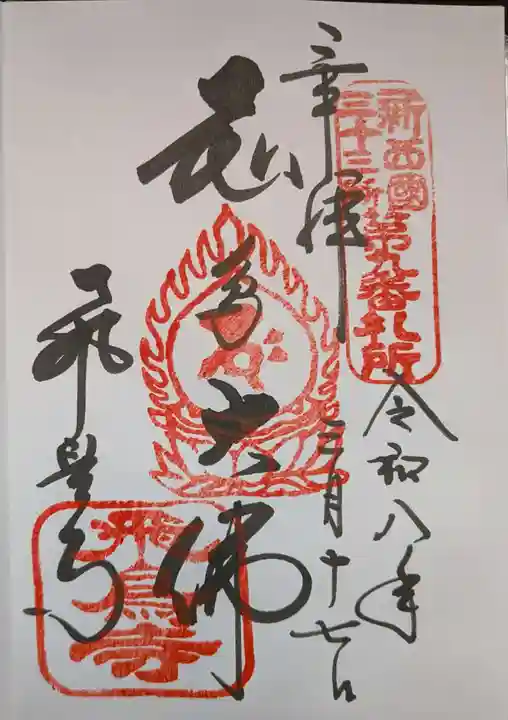 新西國
三十三所第九番札所
奉拝
令和八年
三月十七日
飛鳥大佛
飛鳥寺
飛鳥寺